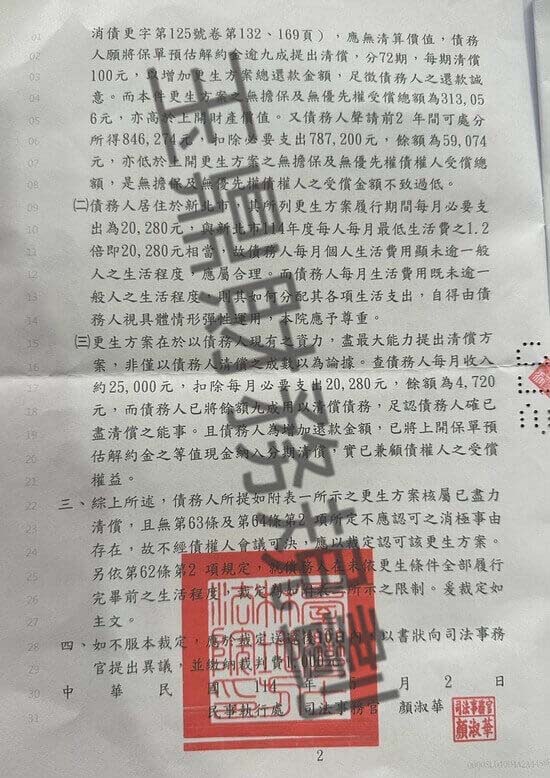 01 消債更字第125號卷第132、169頁），應無清算價值，債務
02 人願將保單預估解約金逾九成提出清償，分72期，每期清償
03 100元，以增加更生方案總還款金額，足徵債務人之還款誠
04 意。而本件更生方案之無擔保及無優先權受償總額為313,05
05 6元，亦高於上開財產價值。又債務人聲請前2 年間可處分
06 所得846,274元，扣除必要支出787,200元，餘額為59,074
07 元，亦低於上開更生方案之無擔保及無優先權債權人受償總
08 額，是無擔保及無優先權債權人之受償金額不致過低。
09 ㈡債務人居住於新北市，其所列更生方案履行期間每月必要支
10 出為20,280元，與新北市114年度每人每月最低生活費之1.2
11 倍即20,280元相當，故債務人每月個人生活費用顯未逾一般
12 人之生活程度，應屬合理。而債務人每月生活費用既未逾一
13 般人之生活程度，則其如何分配其各項生活支出，自得由債
14 務人視具體情形彈性運用，本院應予尊重。
15 ㈢更生方案在於以債務人現有之資力，盡最大能力提出清償方
16 案，非僅以債務人清償之成數以為論據。查債務人每月收入
17 約25,000元，扣除每月必要支出20,280元，餘額為4,720
18 元，而債務人已將餘額九成用以清償債務，足認債務人確已
19 盡清償之能事。且債務人為增加還款金額，已將上開保單預
20 估解約金之等值現金納入分期清償，實已兼顧債權人之受償
21 權益。
22 三、綜上所述，債務人所提如附表一所示之更生方案核屬已盡力
23 清償，且無第63條及第64條第2 項所定不應認可之消極事由
24 存在，故不經債權人會議可決，應以裁定認可該更生方案。
25 另依第62條第2 項規定，就債務人在未依更生條件全部履行
26 完畢前之生活程度，裁定為如附表二所示之限制。爰裁定如
27 主文。
28 四、如不服本裁定，應於裁定送達後10日內，以書狀向司法事務
29 官提出異議，並繳納裁判費1,000元。
30 中華民國114年5月2日
31 民事執行處 司法事務官 顏淑華
司法事務官
顏淑華
2